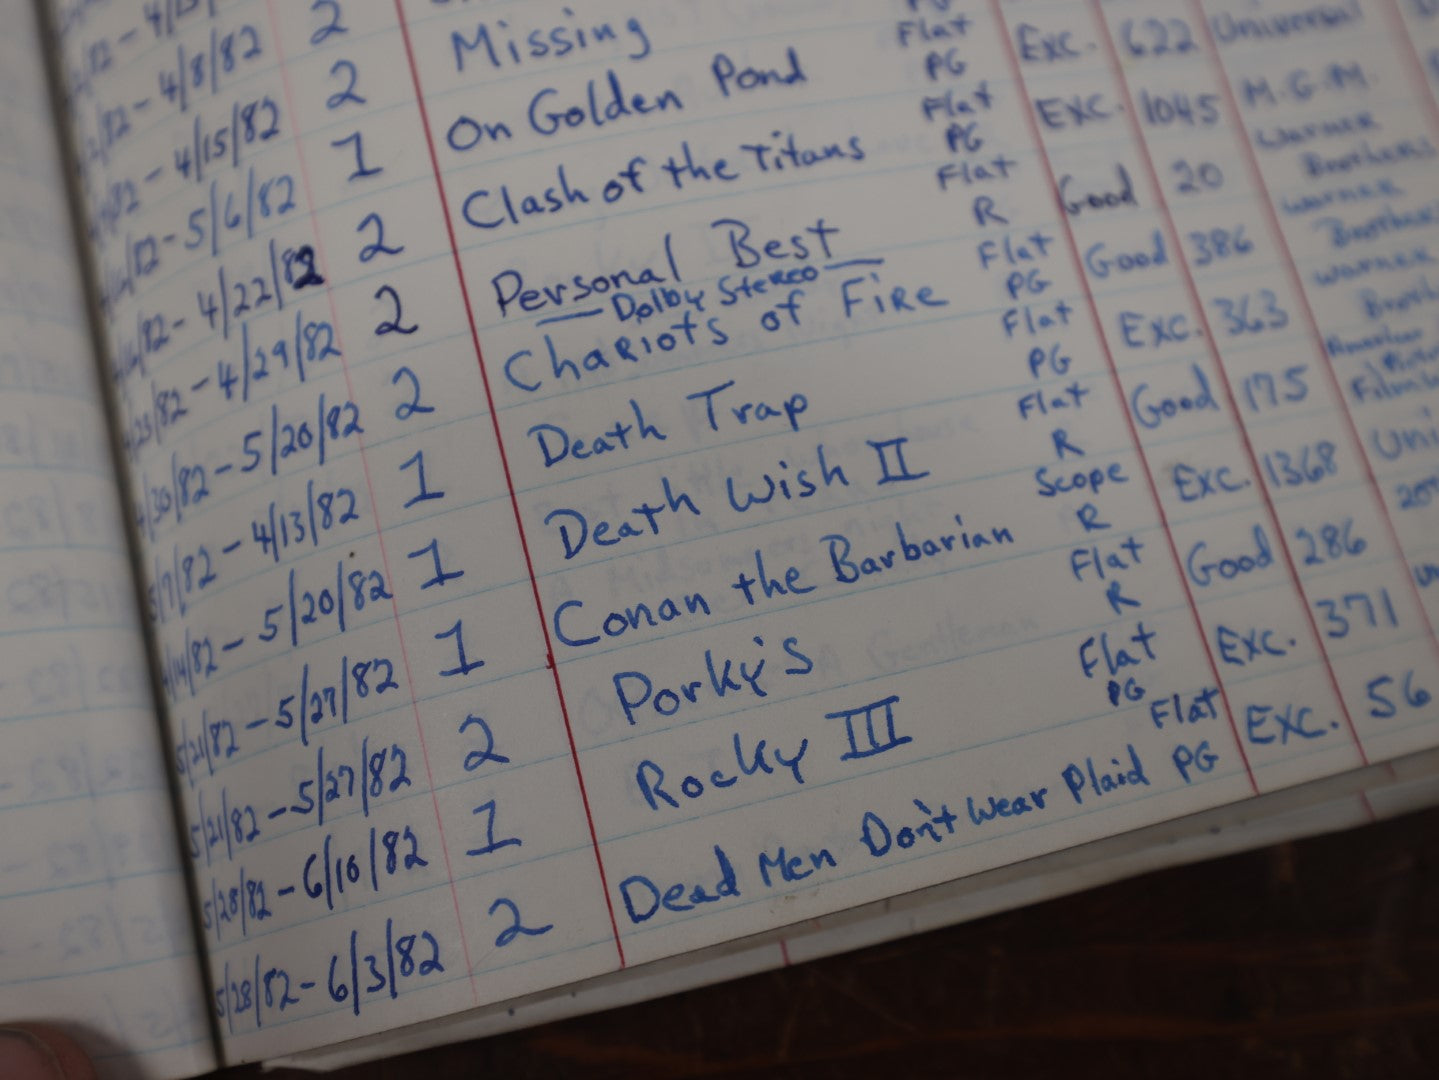 4/8/82 2
4/15/82 2 Missing
- 5/6/82 1 On Golden Pond Flat PG Exc. 622 Universal
- 4/22/82 2 Clash of the Titans Flat PG Exc. 1045 M.G.M.
4/23/82 - 4/29/82 2 Personal Best Flat R Good 20 Warner Brothers
Dolby Stereo
4/30/82 - 5/20/82 2 Chariots of Fire Flat PG Good 386 Warner Brothers
5/7/82 - 4/13/82 1 Death Trap Flat PG Exc. 363 Warner
4/14/82 - 5/20/82 1 Death Wish II Flat R Good 175
5/21/82 - 5/27/82 1 Conan the Barbarian Scope R Exc. 1368 Uni
5/21/82 - 5/27/82 2 Porky's Flat R Good 286
5/28/82 - 6/10/82 1 Rocky III Flat PG Exc. 371
5/28/82 - 6/3/82 2 Dead Men Don't Wear Plaid Flat PG Exc. 56